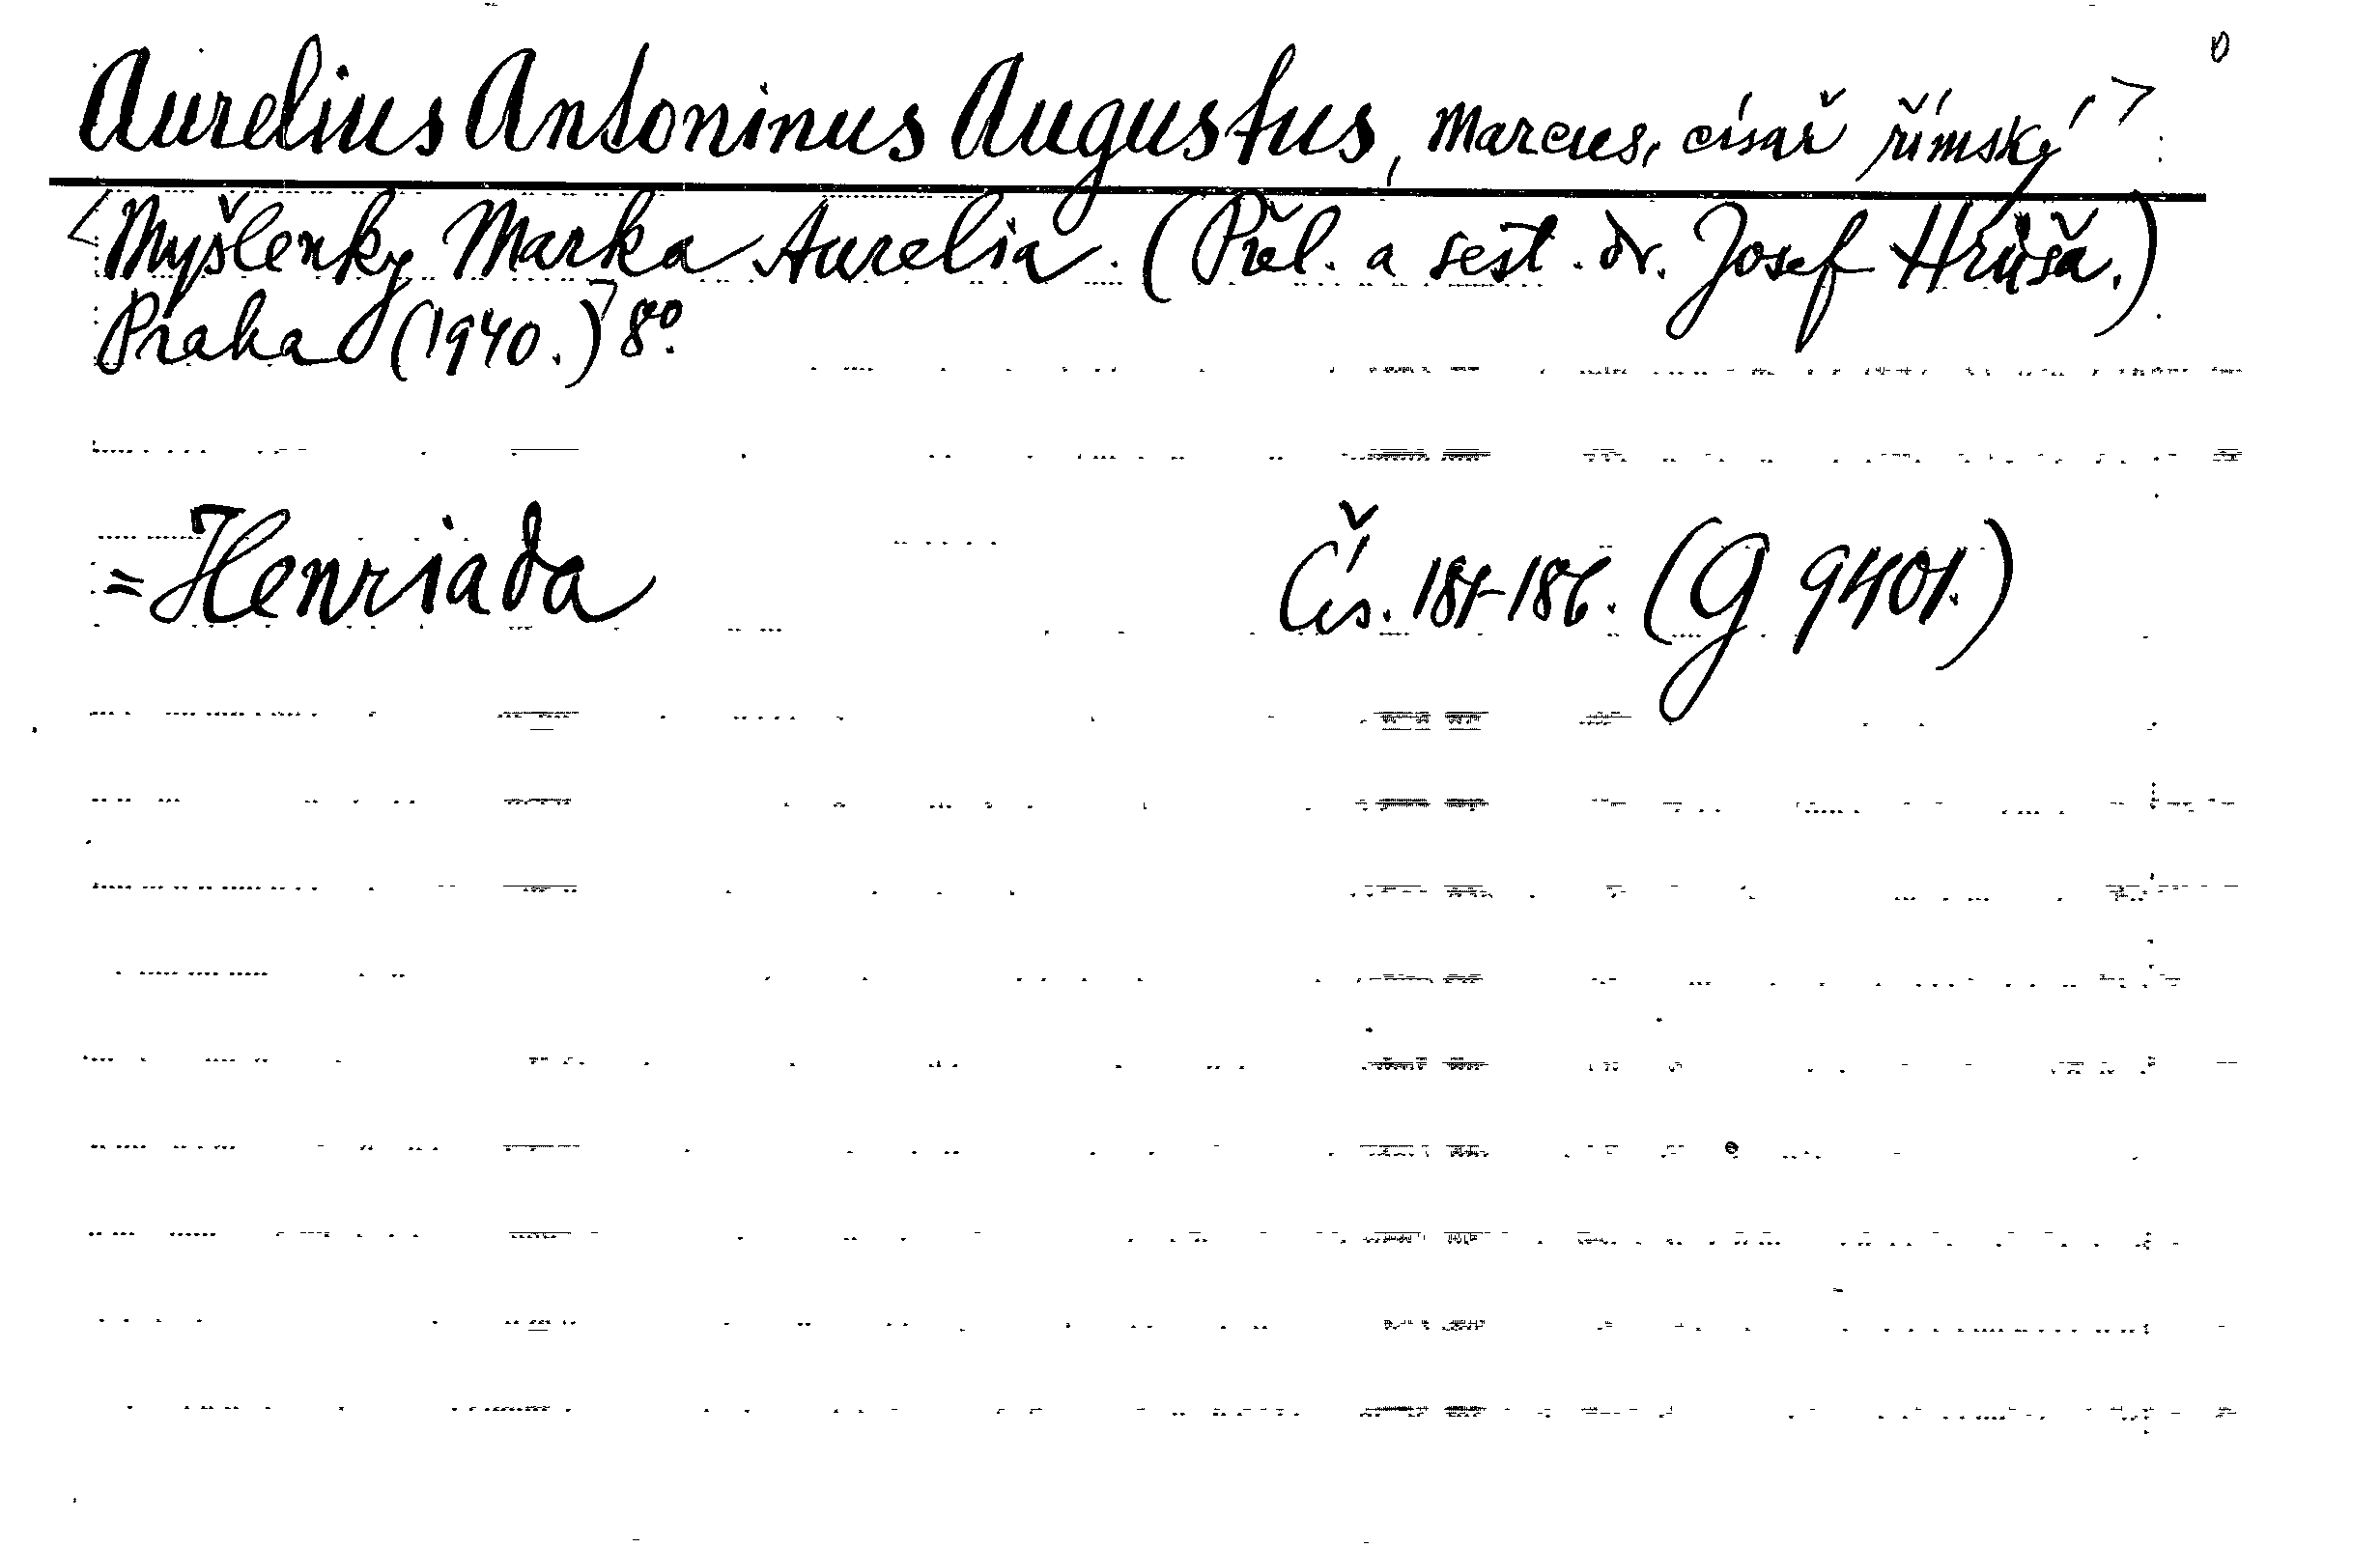 Aurelius Antoninus Augustus, Marcus, císař římský
Myšlenky Marka Aurelia. (Přel. a sest. dr. Josef Hrůša.)
Praha (1940.) 8°.
= Henriada Čís. 181-186. (G 9401.)